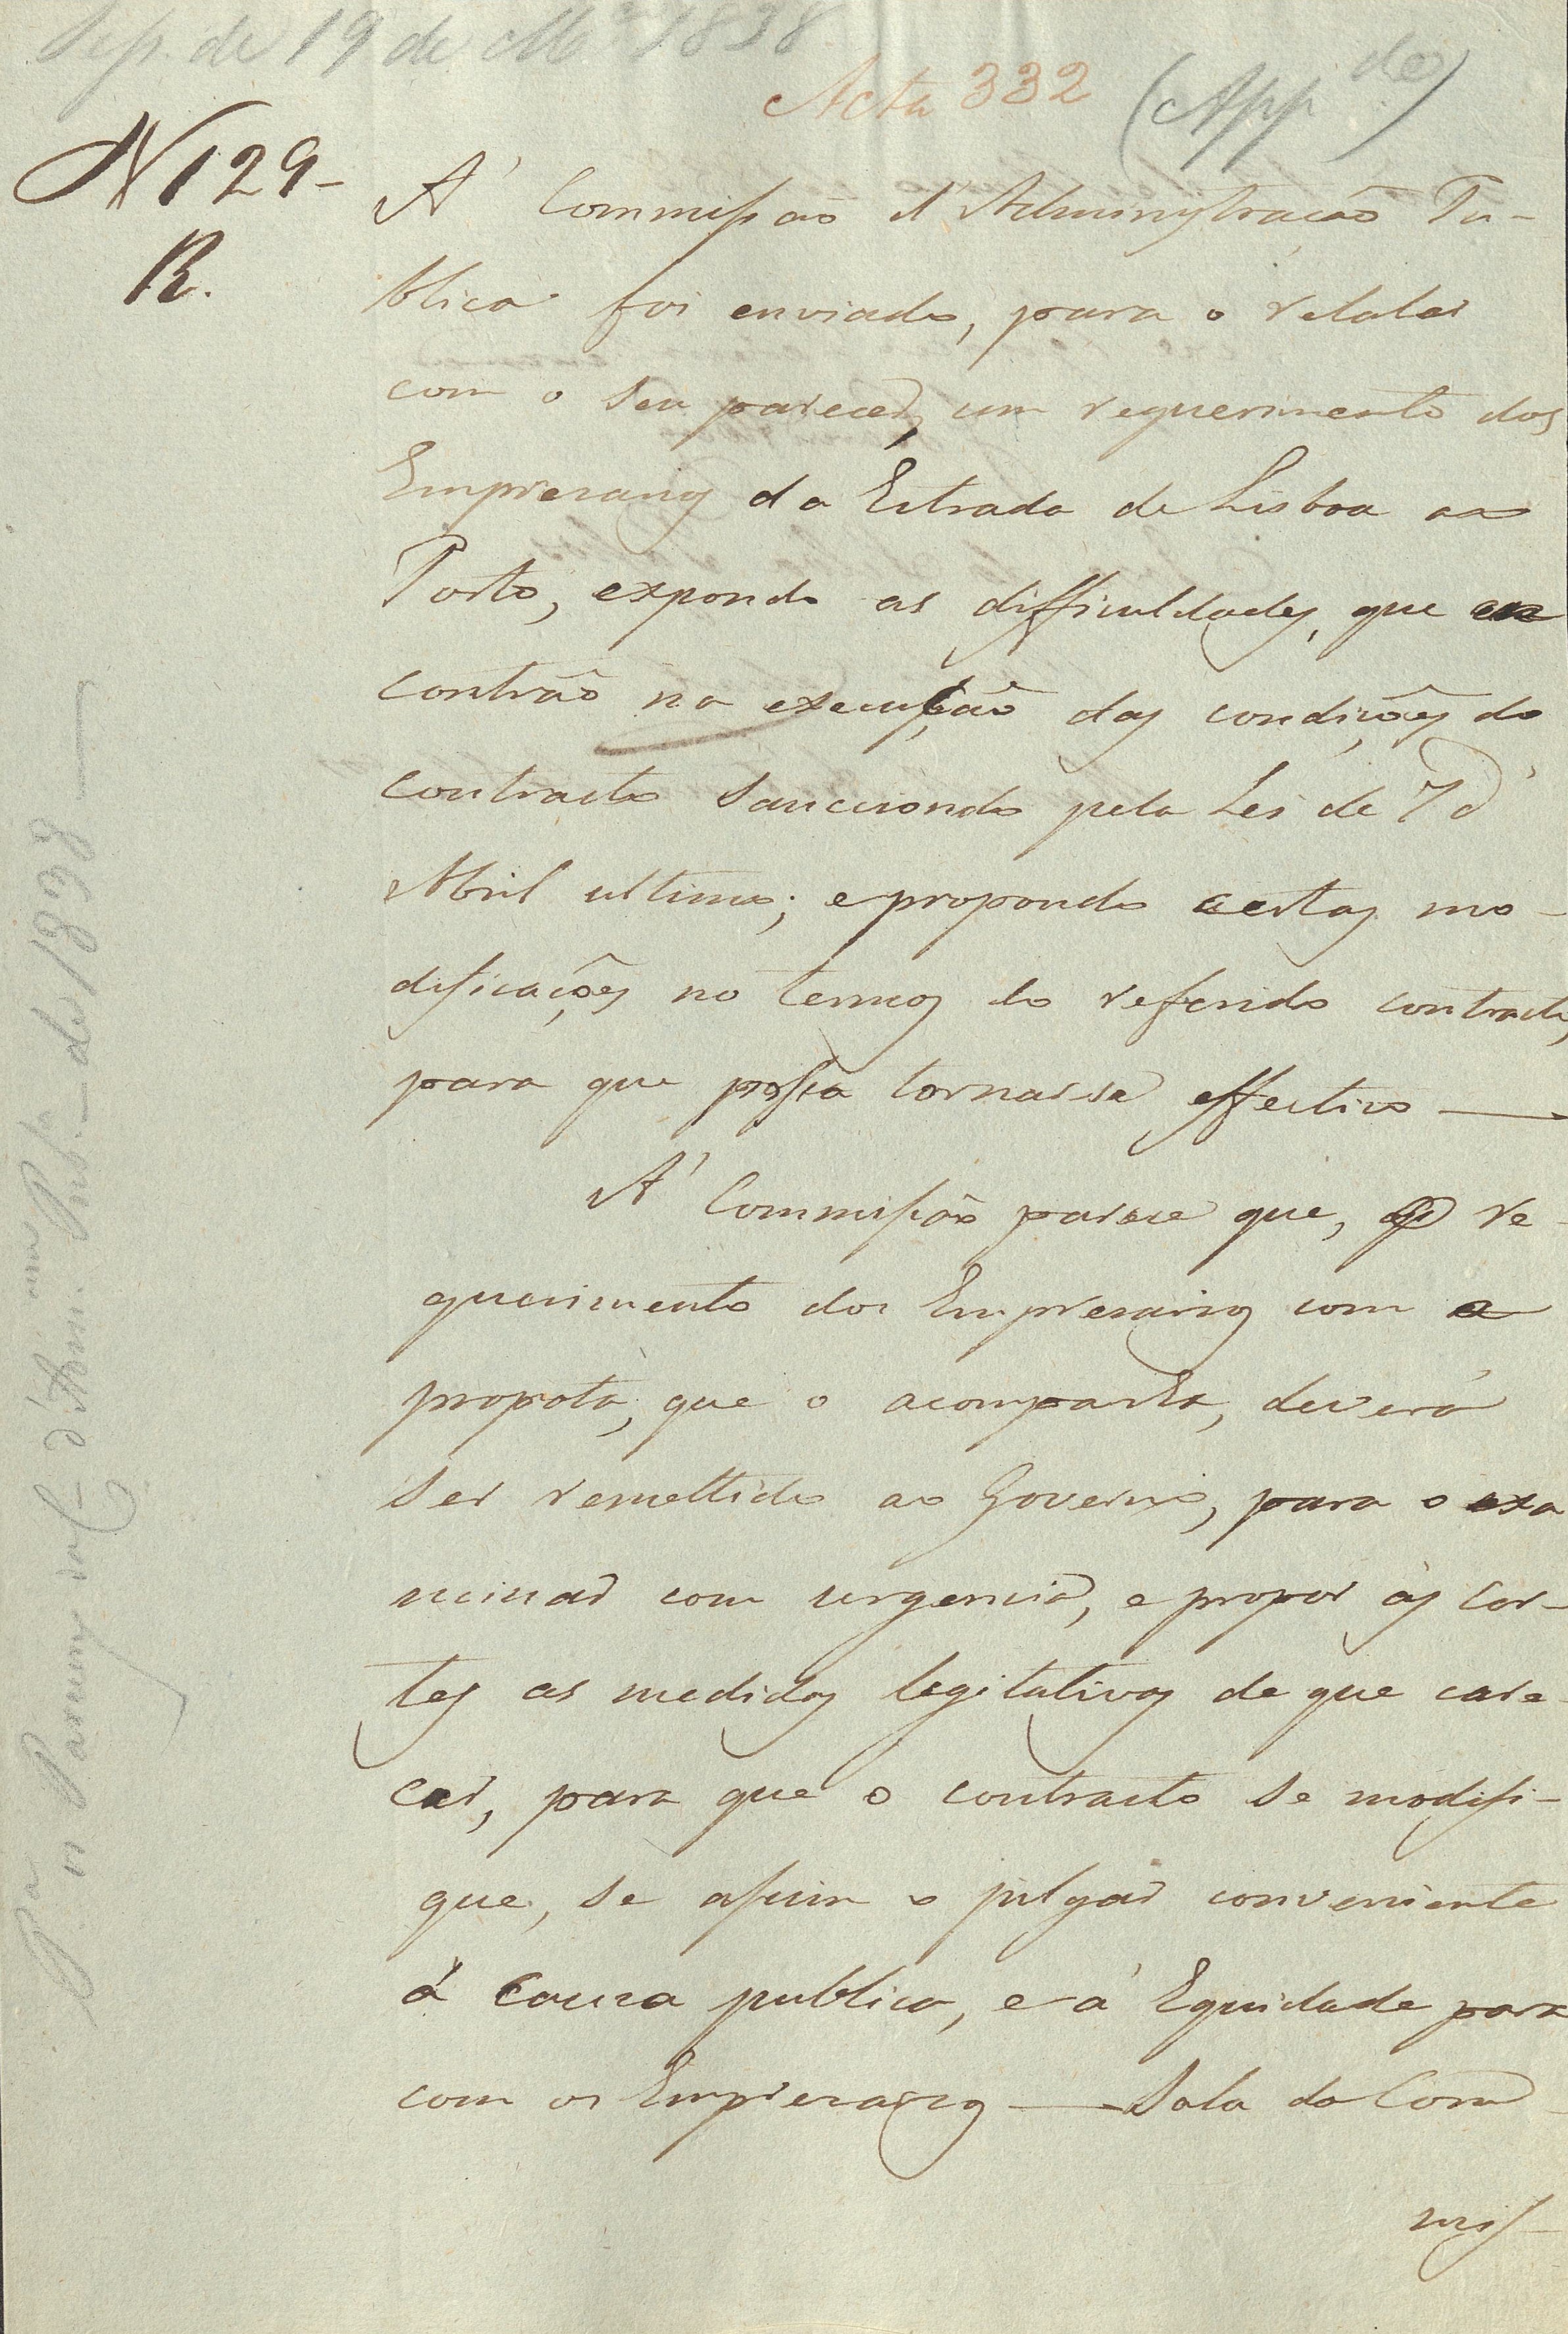 Sess. de 19 de Mço 1838
Acta 332 (Appdo)
N 129-
R.
A' Commissão d'Administração Pu-
blica foi enviado, para o relatar
com o seu parecer, um requerimento dos
Emprezarios da Estrada de Lisboa ao
Porto, expondo as difficuldades, que en
contrão na execução das condições do
contracto sanccionado pela Lei de 7 d'
Abril ultimo; e propondo certas mo-
dificações no termos do referido contracto,
para que possa tornarse effectivo —
A' Commissão parece que, o re-
querimento dos Emprezarios com a
proposta, que o acompanha, deverá
ser remettido ao Governo, para o exa
minar com urgencia, e propor ás Cor-
tes as medidas legislativas de que care-
cer, para que o contracto se modifi-
que, se assim o julgar conveniente
á Cauza publica, e á Equidade para
com os Emprezarios — Sala da Com
mis-
Pa n Parecer da Comam d'Adm. Puba de 1838 —